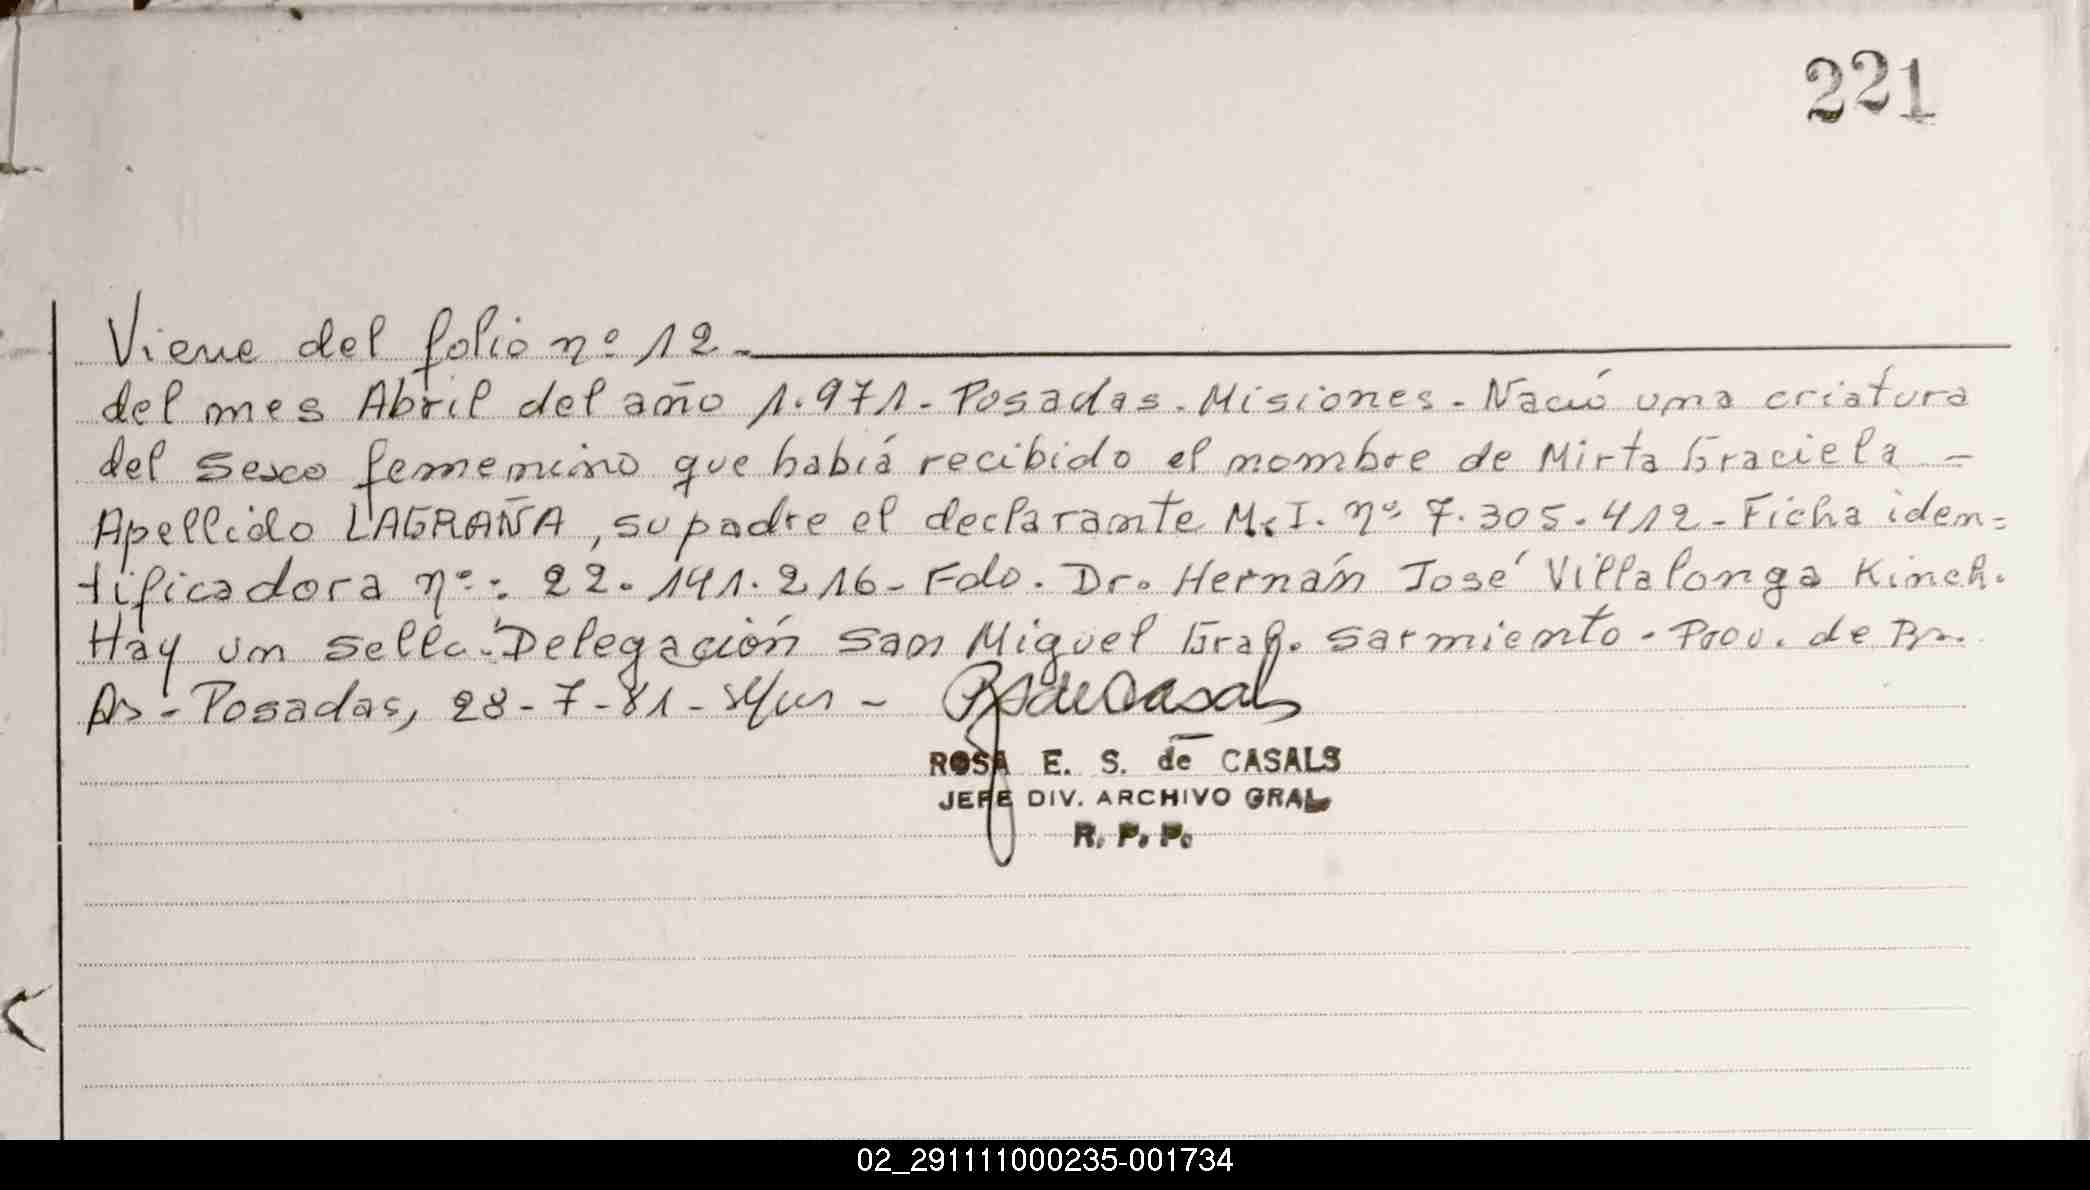 221
Viene del folio nº 12.
del mes Abril del año 1.971. Posadas. Misiones. Nació una criatura
del sexo femenino que había recibido el nombre de Mirta Graciela -
Apellido LAGRAÑA, su padre el declarante M.I. nº 7.305.412 - Ficha iden=
tificadora nº: 22.141.216 - Fdo. Dr. Hernán José Villalonga Kinch.
Hay un sello. Delegación San Miguel Gral. Sarmiento. Prov. de Bs.
As - Posadas, 28-7-81 -
ROSA E. S. de CASALS
JEFE DIV. ARCHIVO GRAL
R. P. P.
02_291111000235-001734